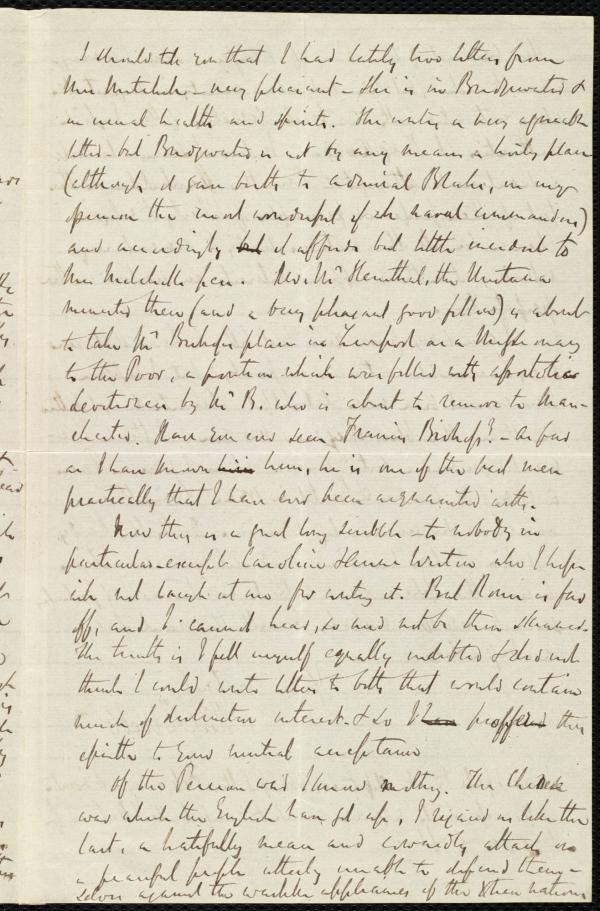 I should tell you that I had lately two letters from
Mrs Mitchell - very pleasant - She is in Bridgwater &
in usual health and spirits. She writes a very agreeable
letter - but Bridgwater is not by any means a lively place
(although it gave birth to Admiral Blake, in my
opinion the most wonderful of the naval commanders)
and accordingly but it affords but little incident to
Mrs Mitchell's pen. Revd. Mr the Unitarian
minister there (and a very pleasant good fellow) is about
to take Mr Bishop's place in Liverpool as a Missionary
to the Poor, a position which was filled with apostolic
devotedness by Mr B. who is about to remove to Man-
chester. Have you ever seen Francis Bishop? - As far
as I have known him, he is one of the best men
practically that I have ever been acquainted with.
Now this is a great long scribble - to nobody in
particular - except Caroline & Weston who I hope
will not laugh at me for writing it. But Rome is far
off, and I cannot hear, so and not be then
The truth is I felt myself equally indebted & did not
think I could write letters to both that would contain
much of distinctive interest. & so I proffered this
epistle to your mutual acceptance
Of the Persian war I know nothing. The Chinese
war which the English have got up, I regard as like the
last, a hatefully mean and cowardly attack on
a peaceful people utterly unable to defend them-
selves against the warlike appliances of the Xtian nations